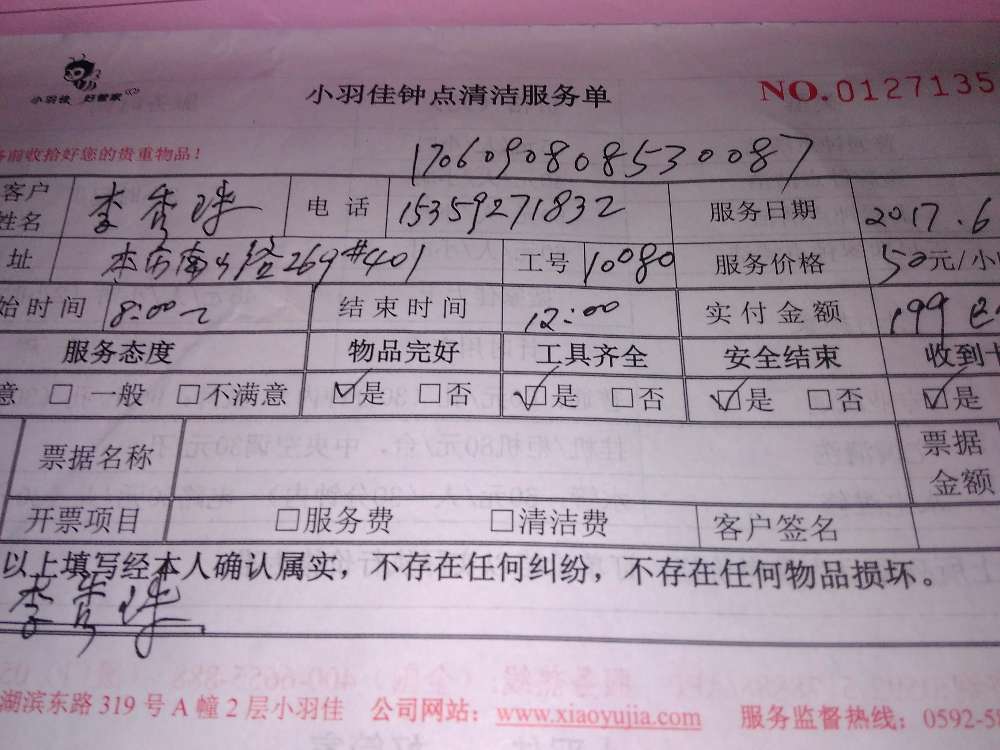 小羽佳 好管家
小羽佳钟点清洁服务单
NO.0127135
前收拾好您的贵重物品!
1706090808530087
客户姓名 李秀珠 电话 15359271832 服务日期 2017.6
址 269#401 工号 10080 服务价格 50元/小
始时间 8:00 结束时间 12:00 实付金额 199
服务态度 物品完好 工具齐全 安全结束 收到卡
意 □一般 □不满意 ☑是 □否 ☑是 □否 ☑是 □否 ☑是
票据名称 票据金额
开票项目 □服务费 □清洁费 客户签名
以上填写经本人确认属实，不存在任何纠纷，不存在任何物品损坏。
李秀珠
湖滨东路319号A幢2层小羽佳 公司网站：www.xiaoyujia.com 服务监督热线：0592-5